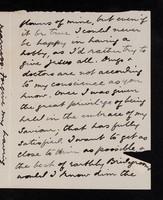 flowers of mine, but even if
it be true I could never
be happy in having a
hobby, as I'd rather try to
give Jesus all. Drugs &
doctors are not according
to my conscience as you
know. Once I was given
the great privilege of being
held in the embrace of my
Saviour, that has fully
satisfied. I want to get as
close to Him as possible &
the best of earthly Bridegrooms
would I know dim the